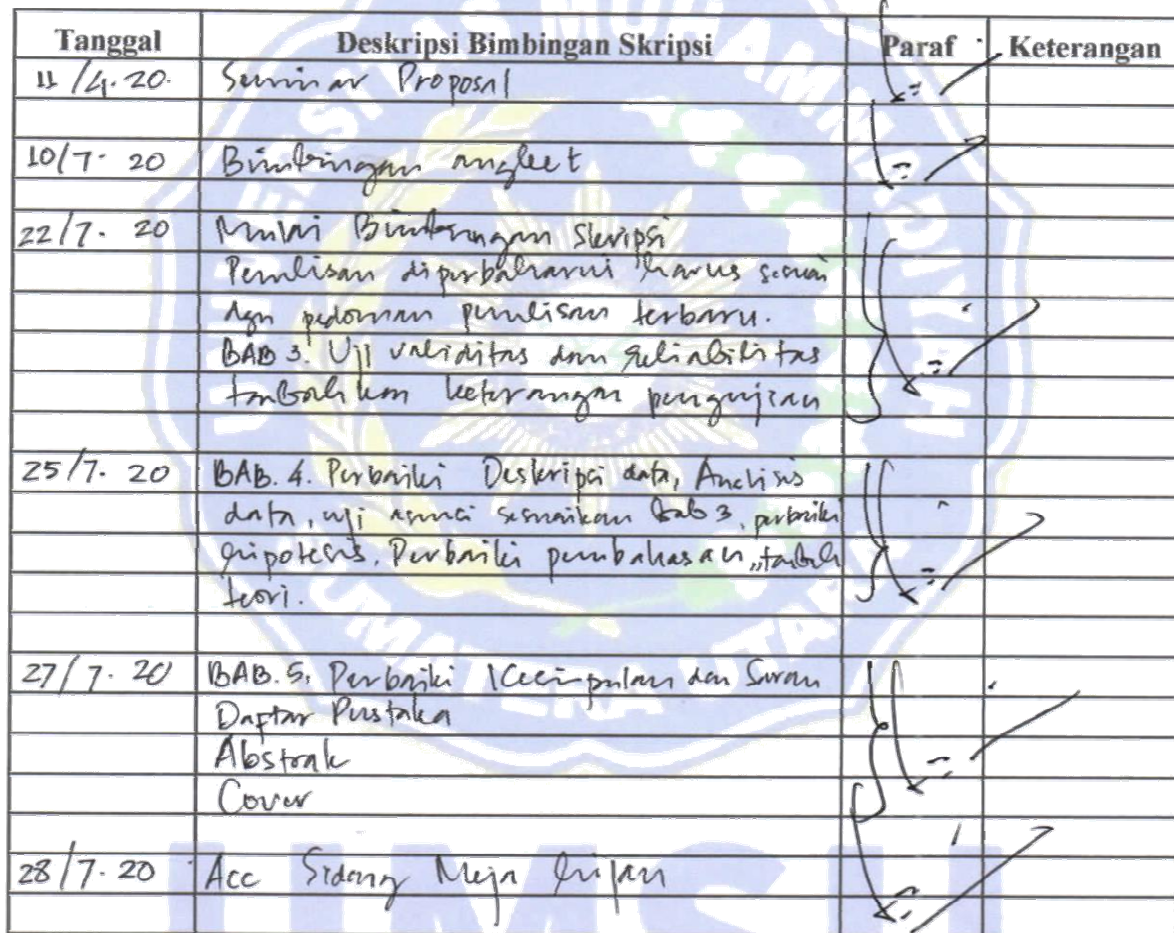 Tanggal Deskripsi Bimbingan Skripsi Paraf Keterangan
11/4.20. Seminar Proposal
10/7.20 Bimbingan angket
22/7.20 Mulai Bimbingan Skripsi
Penulisan diperbaharui harus sesuai
dgn pedoman penulisan terbaru.
BAB 3. Uji validitas dan reliabilitas
tambahkan keterangan pengujian
25/7.20 BAB. 4. Perbaiki Deskripsi data, Analisis
data, uji asumsi sesuaikan bab 3, perbaiki
hipotesis. Perbaiki pembahasan, tambah
teori.
27/7.20 BAB. 5. Perbaiki Kesimpulan dan Saran
Daftar Pustaka
Abstrak
Cover
28/7.20 Acc Sidang Meja Hijau
UNIVERSITAS MUHAMMADIYAH
SUMATERA UTARA
UMSU